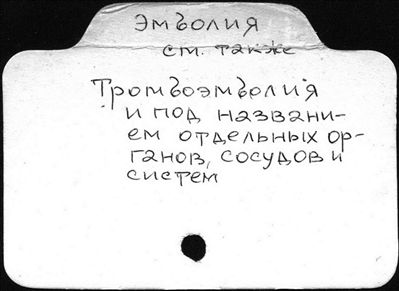 Эмболия
см. также
Тромбоэмболия
и под названи-
ем отдельных ор-
ганов, сосудов и
систем